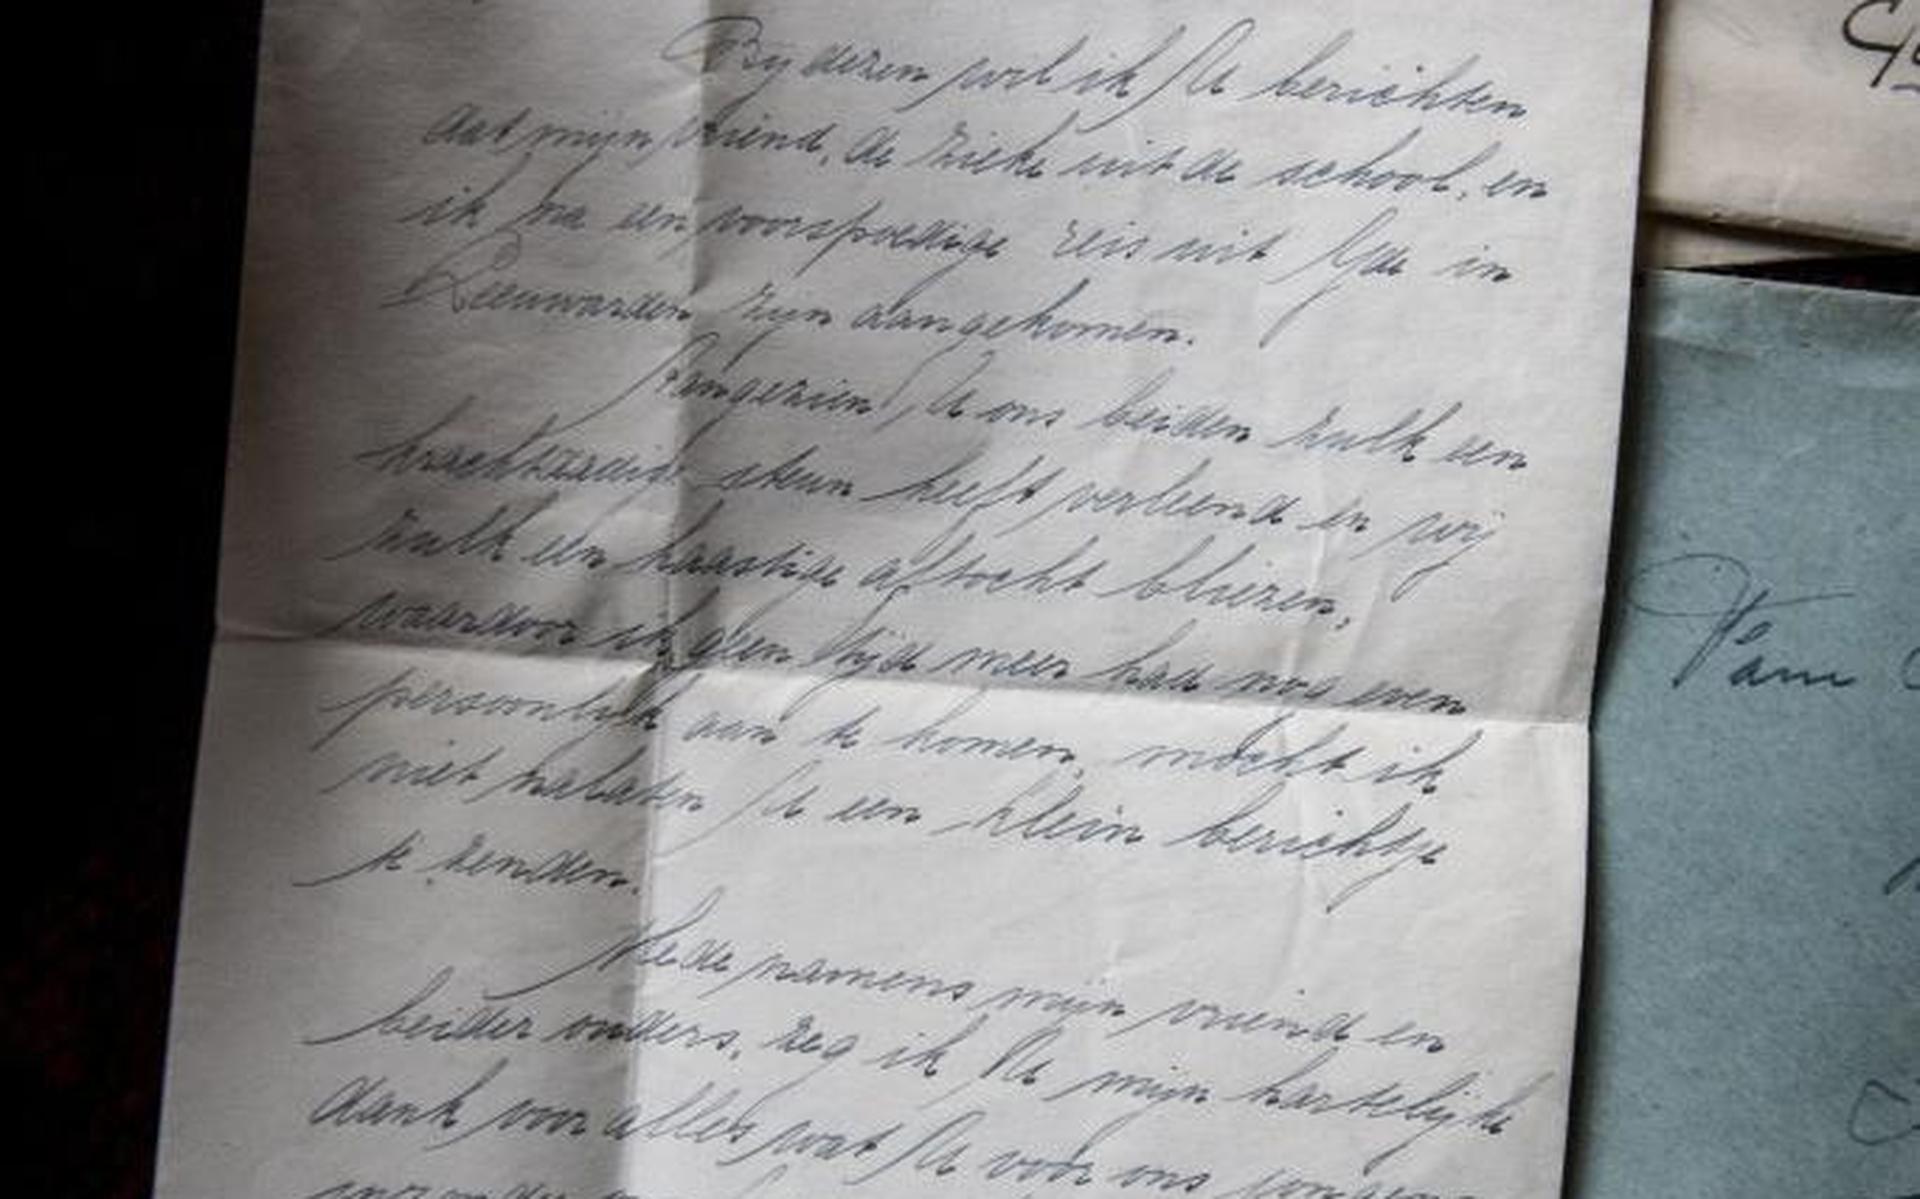 By dezen wil ik U berichten
dat mijn vriend, de zieke uit de school, en
ik na een voorspoedige reis uit in
Leeuwarden zijn aangekomen.
Aangezien U ons beiden zulk een
krachtdadige steun heeft verleend en wij
zulk een haastige aftocht bliezen,
waardoor ik geen tijd meer had nog even
persoonlijk aan te komen, mocht ik
niet nalaten U een klein berichtje
te zenden.
Mede namens mijn vriend en
beider ouders, zeg ik U mijn hartelijke
dank voor alles wat U voor ons jongens
Fam